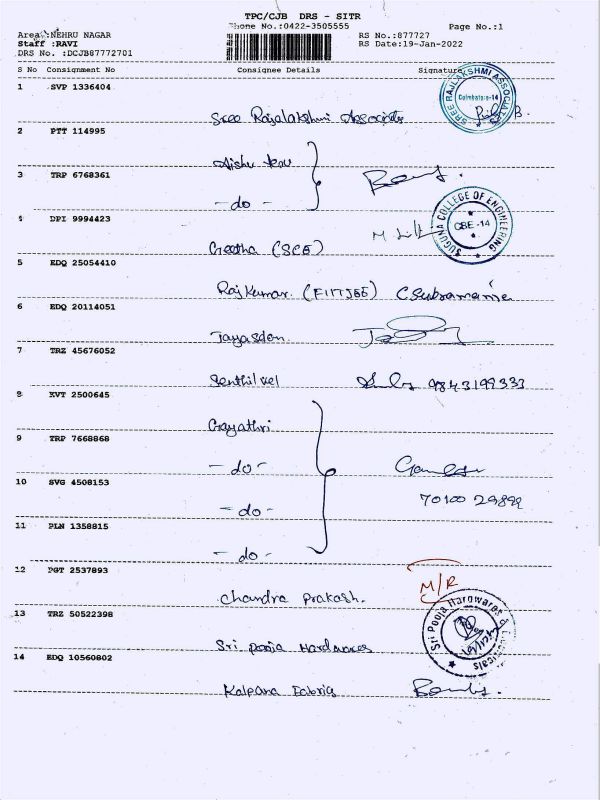 TPC/CJB DRS - SITR
Phone No.:0422-3505555
Page No.:1
Area :NEHRU NAGAR
RS No.:877727
Staff :RAVI
RS Date:19-Jan-2022
DRS No. :DCJB87772701
S No Consignment No Consignee Details Signature
1 SVP 1336404
SREE RAJLAKSHMI ASSOCIATES
Coimbatore-14
Sree Rajalakshmi Associates
2 PTT 114995
Aishu
3 TRP 6768361
- do -
4 DPI 9994423
SUGUNA COLLEGE OF ENGINEERING
CBE-14
Geetha (SCE)
5 EDQ 25054410
Rajkumar. (FIITJEE) C Subramania
6 EDQ 20114051
7 TRZ 45676052
Senthilvel 9843199333
8 KVT 2500645
Gayathri
9 TRP 7668868
- do - Ganesh
10 SVG 4508153
- do -
11 PLN 1358815
- do -
12 PGT 2537893
Chandra Prakash. M/R
13 TRZ 50522398
Sri Pooja Hardwares
Sri Pooja Hardwares
14 EDQ 10560802
Kalpana Fabriq